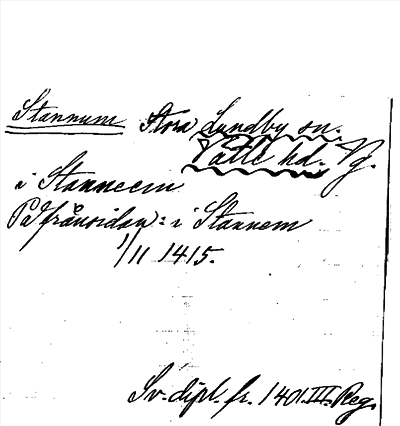 Stannum Stora Lundby sn.
Vättle hd. Vg.
i Stanneem
På frånsidan: i Stannem
1/11 1415.
Sv. dipl. fr. 1401. III. Reg.